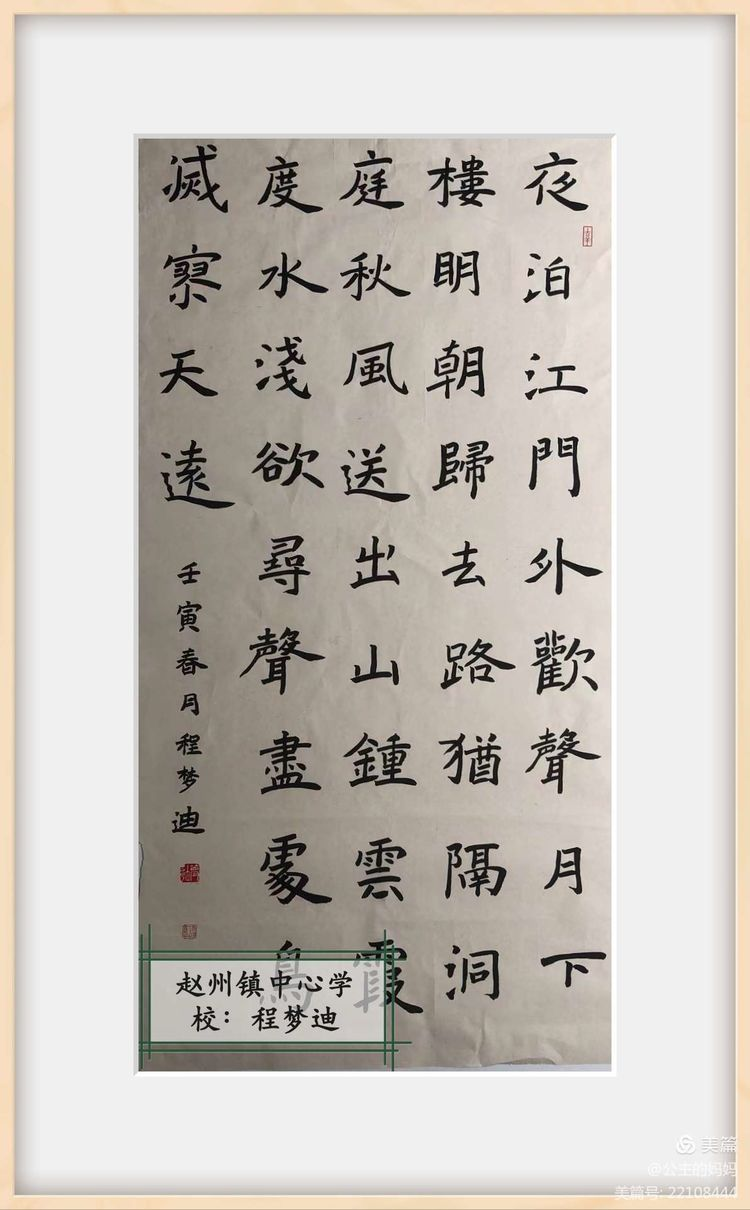 夜泊江門外歡聲月下
樓明朝歸去路猶隔洞
庭秋風送出山鍾雲霞
度水淺欲尋聲盡處鳥
滅寥天遠
壬寅春月程梦迪
赵州镇中心学
校：程梦迪
美篇
@公主的妈妈
美篇号: 22108444